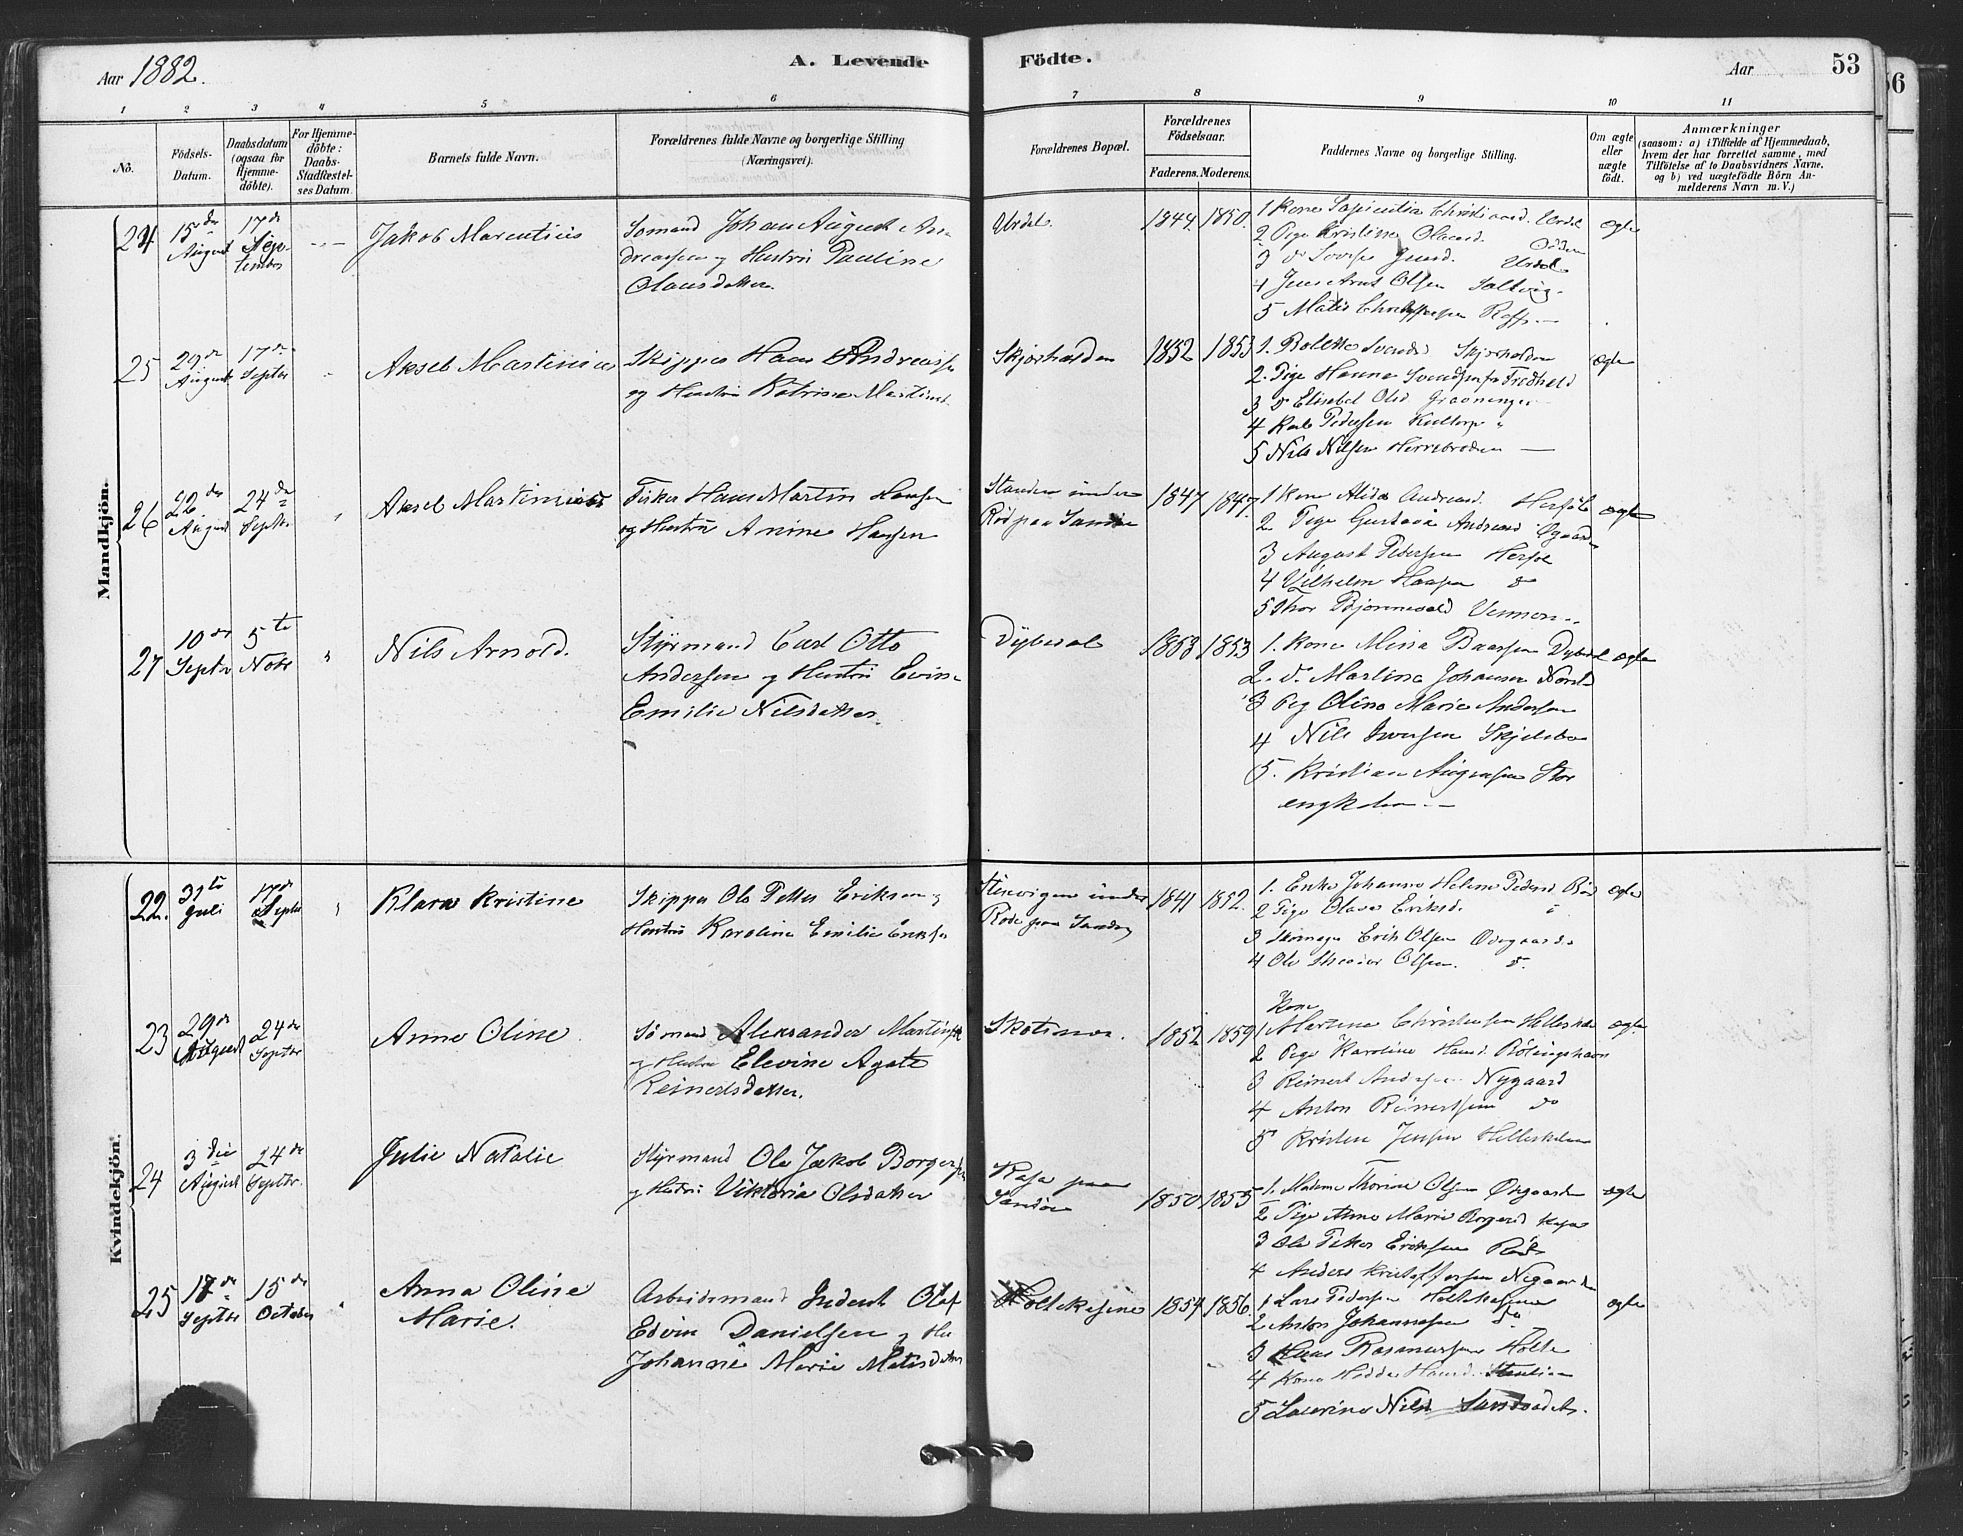 Aar 1882.
A. Levende
Födte.
Aar
53
56
1 2 3 4 5 6 7 8 9 10 11
No.
Födsels-
Datum.
Daabsdatum
(ogsaa for
Hjemme-
döbte).
For Hjemme-
döbte:
Daabs-
Stadfæstel-
ses Datum.
Barnets fulde Navn.
Forældrenes fulde Navne og borgerlige Stilling
(Næringsvei).
Forældrenes Bopæl.
Forældrenes
Födselsaar.
Faderens. Moderens.
Faddernes Navne og borgerlige Stilling.
Om ægte
eller
uægte
födt.
Anmærkninger
(saasom: a) i Tilfælde af Hjemmedaab,
hvem der har forrettet samme, med
Tilföielse af to Daabsvidners Navne,
og b) ved uægtefödte Börn An-
melderens Navn m. V.)
Mandkjön.
24
15de
August
17de
Sep-
tember
Jakob Marentius
Sømand Johan August An-
dreassen og Hustru Pauline
Olausdatter.
Urdal.
1844 1850.
1 Kone Christiansd. Urdal
2 Pige Kristine Olausd.
3 do Jensd. Urdal
4 Jens Arnt Olsen Saltvig.
5 Matis Christoffersen
ægte
25
29de
August
17de
Septbr
Aksel Martinius
Skipper Hans Andreassen
og Hustru Katrine Martinsd.
Skjærhalden
1852 1853
1. Bolette Svends Skjærhalden
2. Pige Hanna Svendsen fra Fredhald
3 do Elisabet Olsd Graaninger
4 Karl Pedersen Kultorp
5 Nils Nilsen Herrebrøden
ægte
26
22de
August
24de
Septbr
Aksel Martinius
Fisker Hans Martin Hansen
og Hustru Anine Hansen
Standen under
Rød paa Sandø
1847 1847.
1 Kone Alida Andreasd. Herføl
2 Pige Gustava Andreasd Øgaarden
3 August Pedersen Herføl
4 Vilhelm Hansen do
5 Thor Bjørnevald
ægte
27
10de
Septbr
5te
Novbr
Nils Arnold.
Styrmand Carl Otto
Andersen og Hustru Evine
Emilie Nilsdatter.
Dybedal
1853 1853
1. Kone Mina Baassen Dybedal
2. do. Martine Johansen
3 Pig Oline Marie Andersen
4 Nils Iversen Skjelsbo
5. Kristian Stor
engkilen
ægte
Kvindekjön.
22.
31te
Juli
17de
Septbr
Klara Kristine
Skipper Ole Petter Eriksen og
Hustru Karoline Emilie Eriksen
Stenvigen under
Røde paa Sandø
1841 1852.
1. Enke Johanne Helene Pedersd. Rød
2 Pige Olava Eriksd.
3 Erik Olsen Øvregaarden
4 Ole Theodor Olsen. do.
ægte
23
29de
August
24de
Septbr
Anna Oline
Sømand Aleksander Martinsen
og Hustru Elevine Agate
Reinertsdatter.
Skotsmyr.
1852 1859
Kone
1 Martine Christensen Hellekilen
2 Pige Karoline Hansd. Røtingshavn
3 Reinert Andersen Nygaard
4 Anton Reinertsen do
5 Kristen Jensen Hellekilen
ægte
24
3die
August
24de
Septbr.
Julie Natalie
Styrmand Ole Jakob Borgersen
og Hustru Viktoria Olsdatter
Kasa paa
Sandø
1850 1855
1. Madame Thorine Olsen Øvgaarden
2 Pige Anne Marie Borgersd Kasa
3 Ole Petter Eriksen Rød
4 Anders Kristoffersen Nygaarden
ægte
25
17de
Septbr
15de
October
Anna Oline
Marie.
Arbeidsmand Inderst Olaf
Edvin Danielsen og Hu
Johanne Marie Matisdatter
Holtekjøne
1854 1856.
1 Lars Pedersen Holtekjøne
2 Anton Johannesen do
3 Rasmussen Holte
4 Kone Hedda Hansd.
5 Laurine Nilsd
ægte